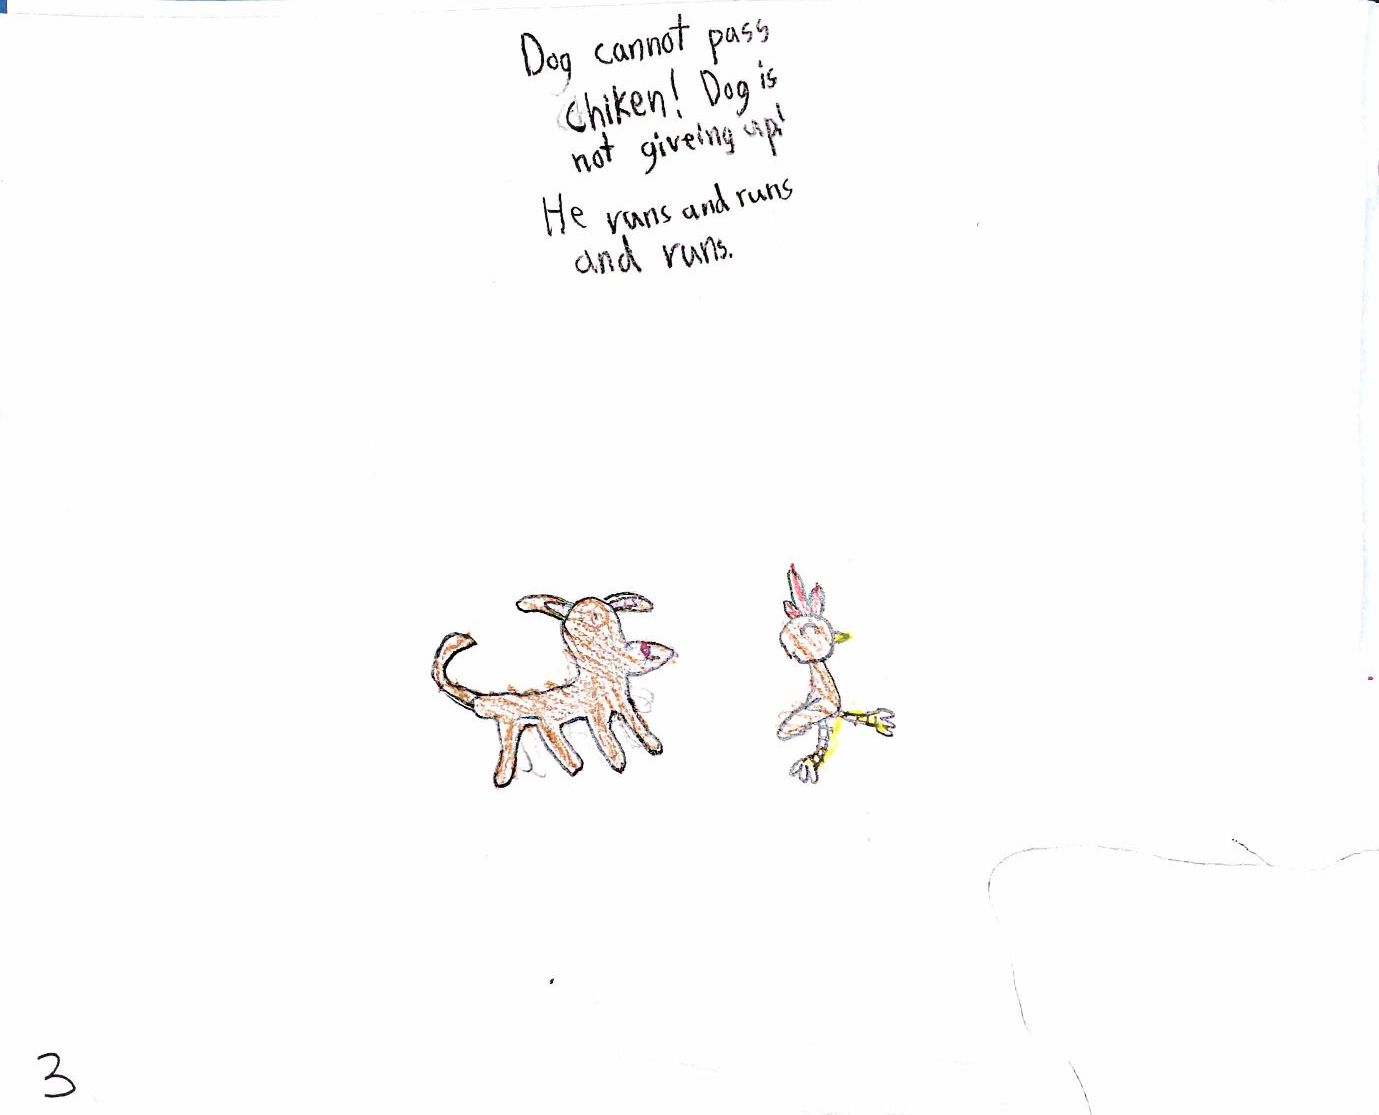 Dog cannot pass
chiken! Dog is
not giveing up!
He runs and runs
and runs.
3